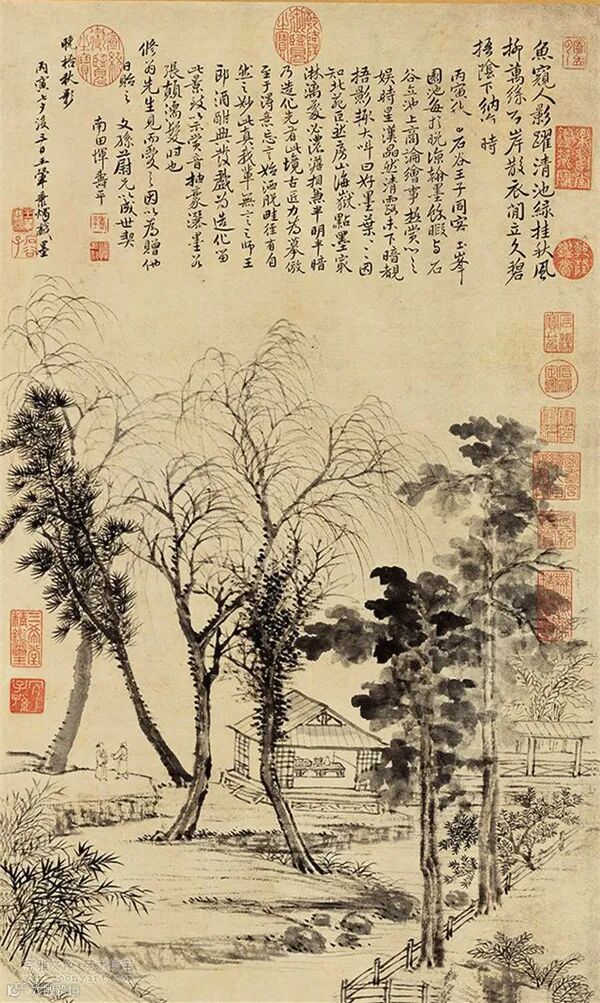 魚窺人影躍清池綠挂秋風
柳萬絲石岸散衣閒立久碧
梧陰下納涼時
丙寅秋石谷王子同客玉峯
園池每於晚涼翰墨餘暇與石
谷立池上商論繪事極賞心之
娛時星漢晶然清露未下暗覩
梧影輒大叫曰好墨葉〻〻因
知北苑巨然房山海嶽點墨最
淋漓處必濃澹相兼半明半暗
乃造化先有此境古匠力為摹倣
至于得意忘言始洒脱畦徑有自
然之妙此真我輩無言之師王
郎酒酣興發戲為造化留
此景致以示賞音抽豪洒墨若
張顛濡髮時也
修翁先生見而愛之因以為贈他
日貽之文孫尉兄以成世契
南田惲壽平
晚梧秋影
丙寅七夕後三日王翬秉燭戲墨
三希堂精鑑璽
宜子孫